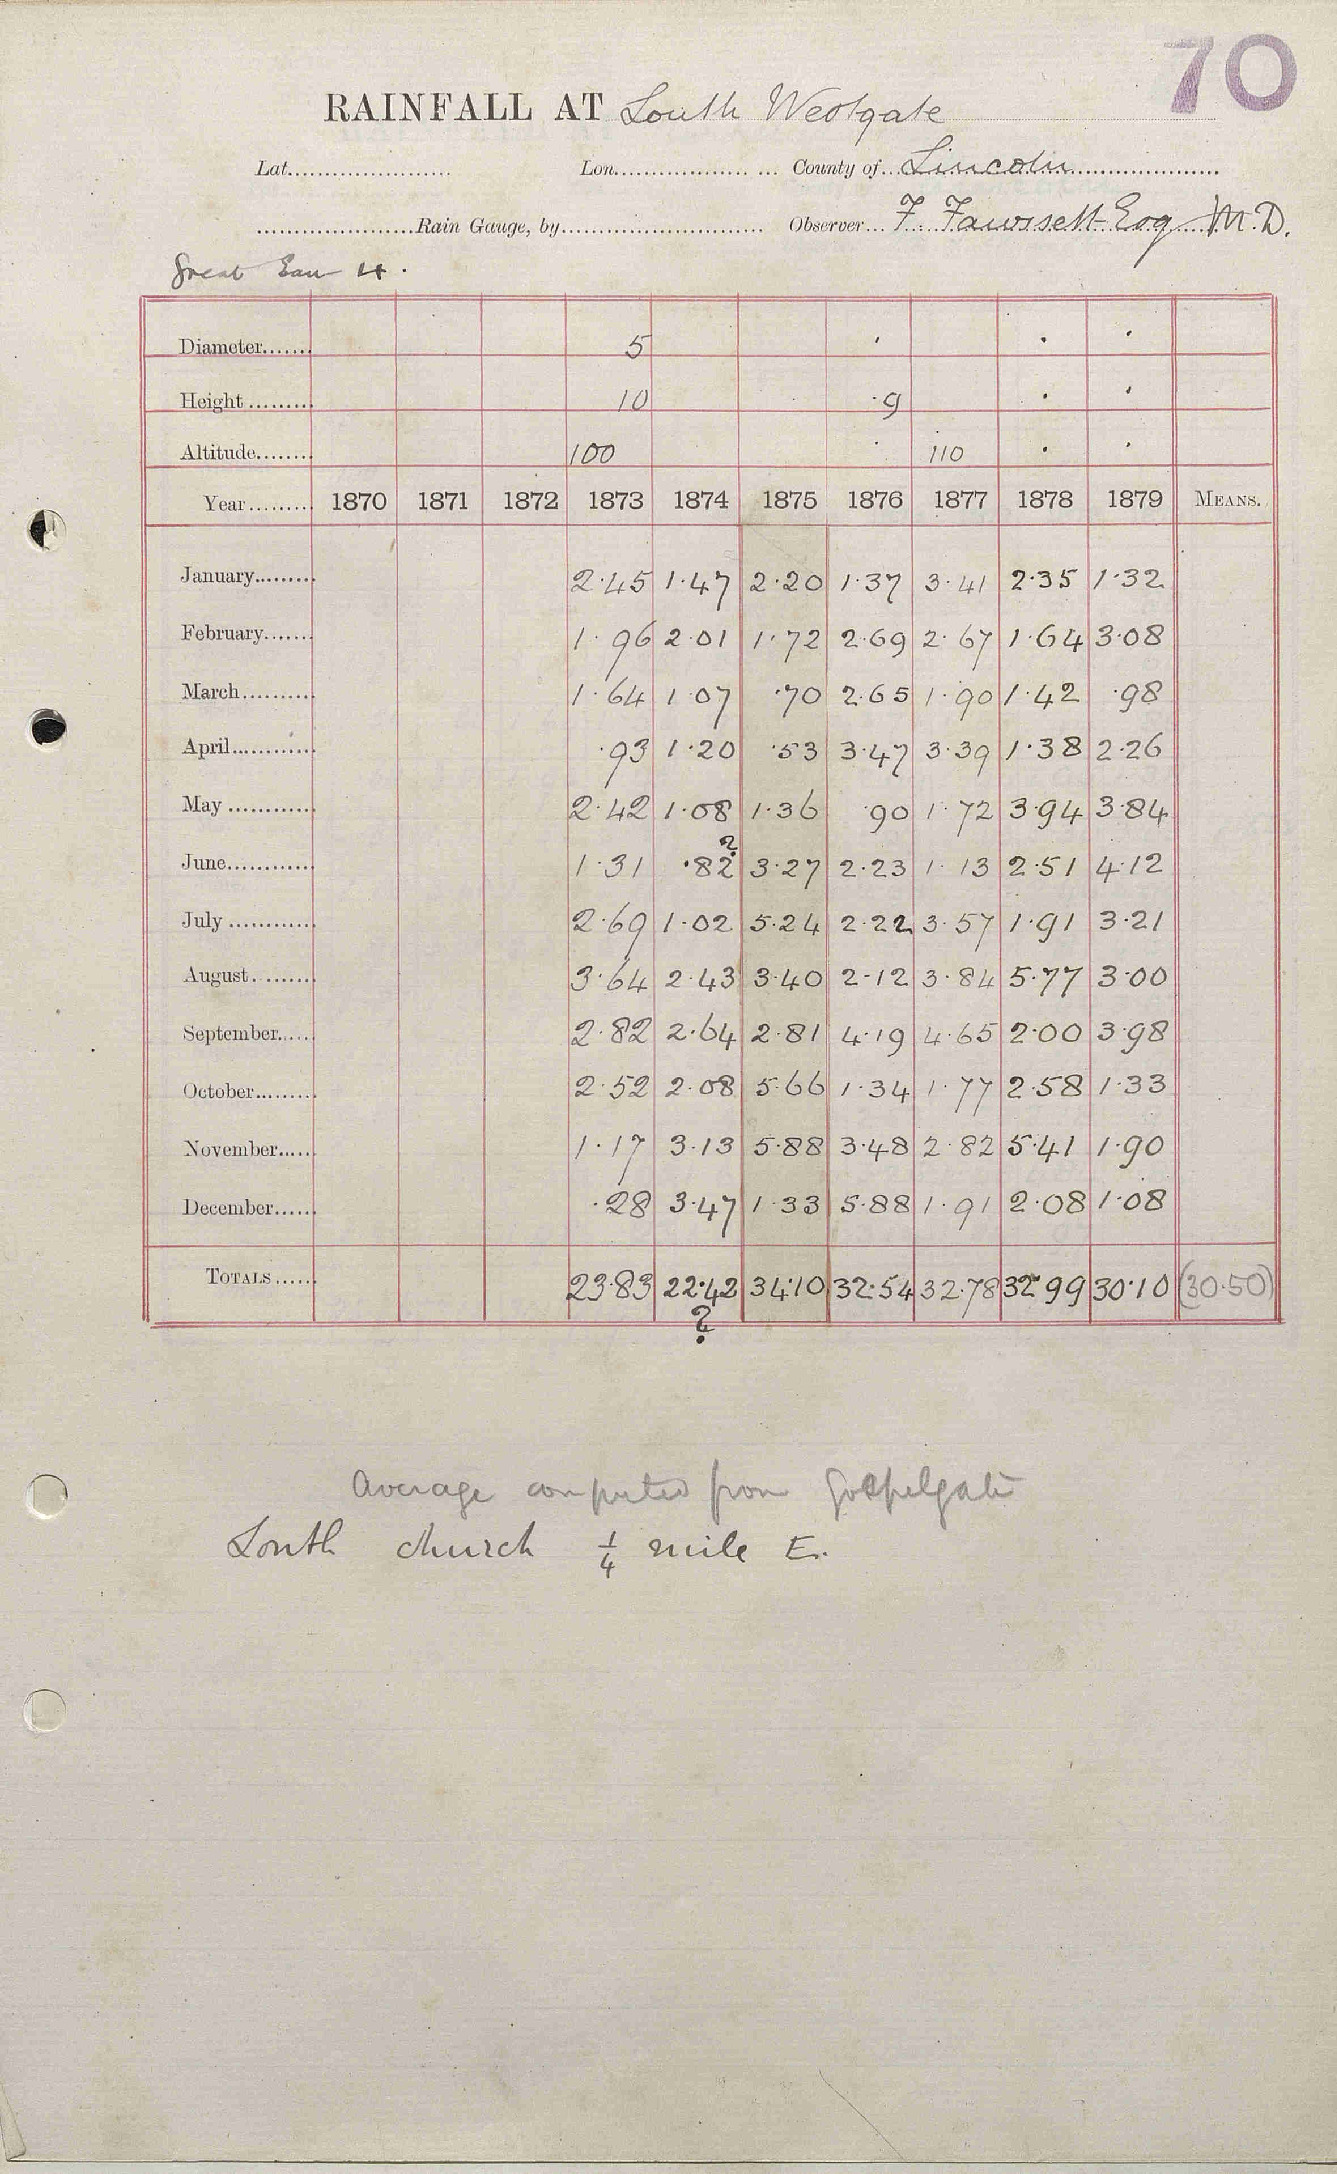 70
RAINFALL AT Louth Westgate
Lat. Lon. County of Lincoln
Rain Gauge, by Observer F. Fawssett Esq M.D.
Great Eau 4.
Diameter 5 · · ·
Height 10 ·9 · ·
Altitude 100 · 110 · ·
Year 1870 1871 1872 1873 1874 1875 1876 1877 1878 1879 MEANS.
January 2·45 1·47 2·20 1·37 3·41 2·35 1·32
February 1·96 2·01 1·72 2·69 2·67 1·64 3·08
March 1·64 1·07 ·70 2·65 1·90 1·42 ·98
April ·93 1·20 ·53 3·47 3·39 1·38 2·26
May 2·42 1·08 1·36 ·90 1·72 3·94 3·84
June 1·31 ·82? 3·27 2·23 1·13 2·51 4·12
July 2·69 1·02 5·24 2·22 3·57 1·91 3·21
August 3·64 2·43 3·40 2·12 3·84 5·77 3·00
September 2·82 2·64 2·81 4·19 4·65 2·00 3·98
October 2·52 2·08 5·66 1·34 1·77 2·58 1·33
November 1·17 3·13 5·88 3·48 2·82 5·41 1·90
December ·28 3·47 1·33 5·88 1·91 2·08 1·08
TOTALS 23·83 22·42 34·10 32·54 32·78 32·99 30·10 (30·50)
?
Average computed from Gospelgate
Louth church 1/4 mile E.